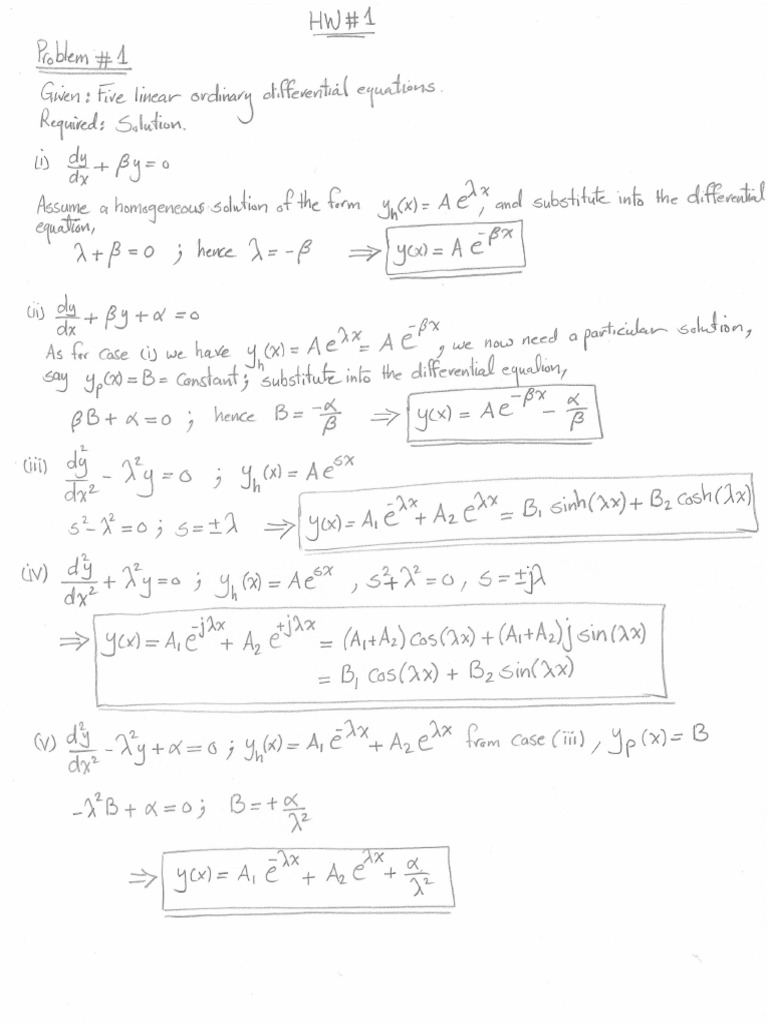 HW#1
Problem #1
Given: Five linear ordinary differential equations.
Required: Solution.
(i) dy/dx + βy = 0
Assume a homogeneous solution of the form y_h(x) = A e^{λx}, and substitute into the differential
equation,
λ + β = 0 ; hence λ = -β ⇒ y(x) = A e^{-βx}
(ii) dy/dx + βy + α = 0
As for case (i) we have y_h(x) = A e^{λx} = A e^{-βx}, we now need a particular solution,
say y_p(x) = B = constant; substitute into the differential equation,
βB + α = 0 ; hence B = -α/β ⇒ y(x) = A e^{-βx} - α/β
(iii) d²y/dx² - λ²y = 0 ; y_h(x) = A e^{sx}
s² - λ² = 0 ; s = ±λ ⇒ y(x) = A₁ e^{-λx} + A₂ e^{λx} = B₁ sinh(λx) + B₂ cosh(λx)
(iv) d²y/dx² + λ²y = 0 ; y_h(x) = A e^{sx} , s² + λ² = 0 , s = ±jλ
⇒ y(x) = A₁ e^{-jλx} + A₂ e^{+jλx} = (A₁+A₂) cos(λx) + (A₁+A₂) j sin(λx)
= B₁ cos(λx) + B₂ sin(λx)
(v) d²y/dx² - λ²y + α = 0 ; y_h(x) = A₁ e^{-λx} + A₂ e^{λx} from case (iii) , y_p(x) = B
-λ²B + α = 0 ; B = + α/λ²
⇒ y(x) = A₁ e^{-λx} + A₂ e^{λx} + α/λ²